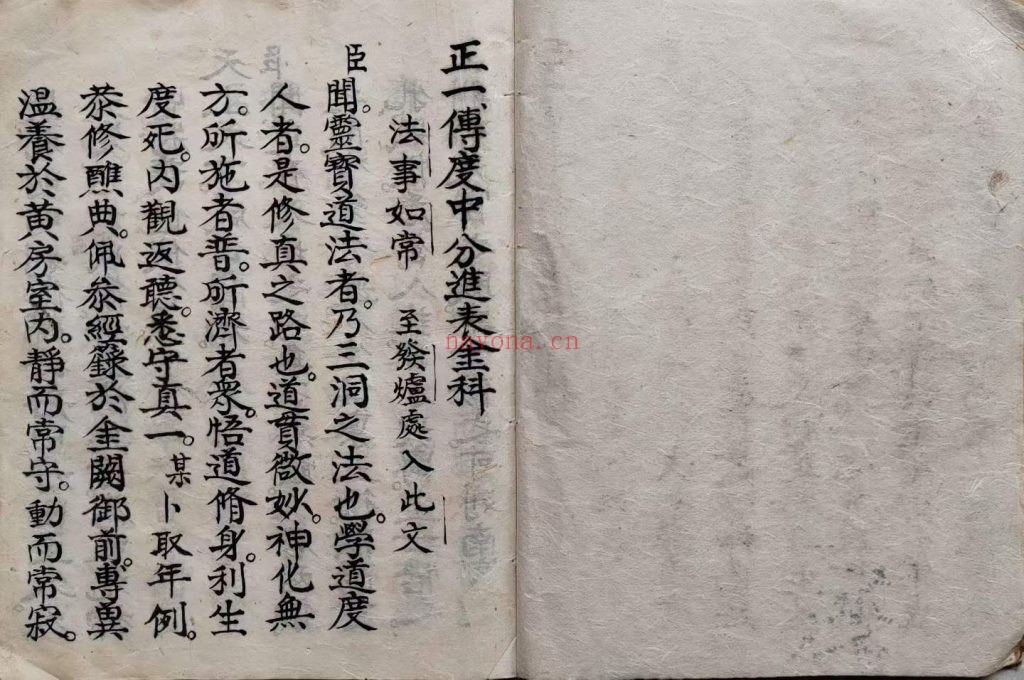 正一傳度中分進表金科
法事如常 至發爐處入此文
臣聞。靈寶道法者。乃三洞之法也。學道度
人者。是修真之路也。道貫微妙。神化無
方。所施者普。所濟者衆。悟道脩身。利生
度死。内觀返聽。悉守真一。某卜取年例。
恭修醮典。佩叅經籙於金闕御前。專異
溫養於黄房室内。靜而常守。動而常寂。
nayona.cn